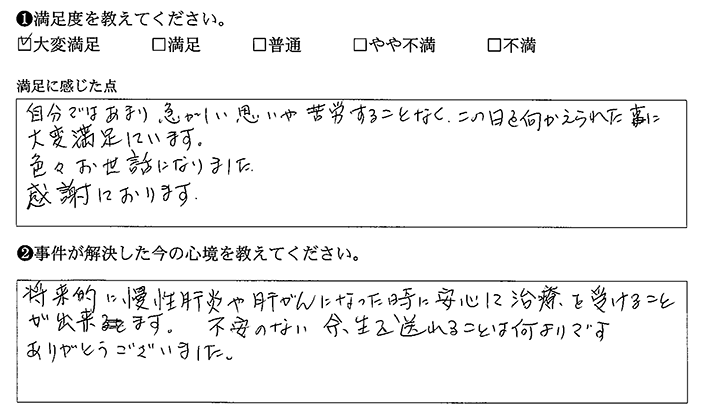 ❶満足度を教えてください。
☑大変満足 □満足 □普通 □やや不満 □不満
満足に感じた点
自分ではあまり、忙がしい思いや苦労することなく、この日を向かえられた事に
大変満足しています。
色々お世話になりました
感謝しております。
❷事件が解決した今の心境を教えてください。
将来的に慢性肝炎や肝がんになった時に安心して治療を受けること
が出来ます。 不安のない余生を送れることは何よりです
ありがとうございました。